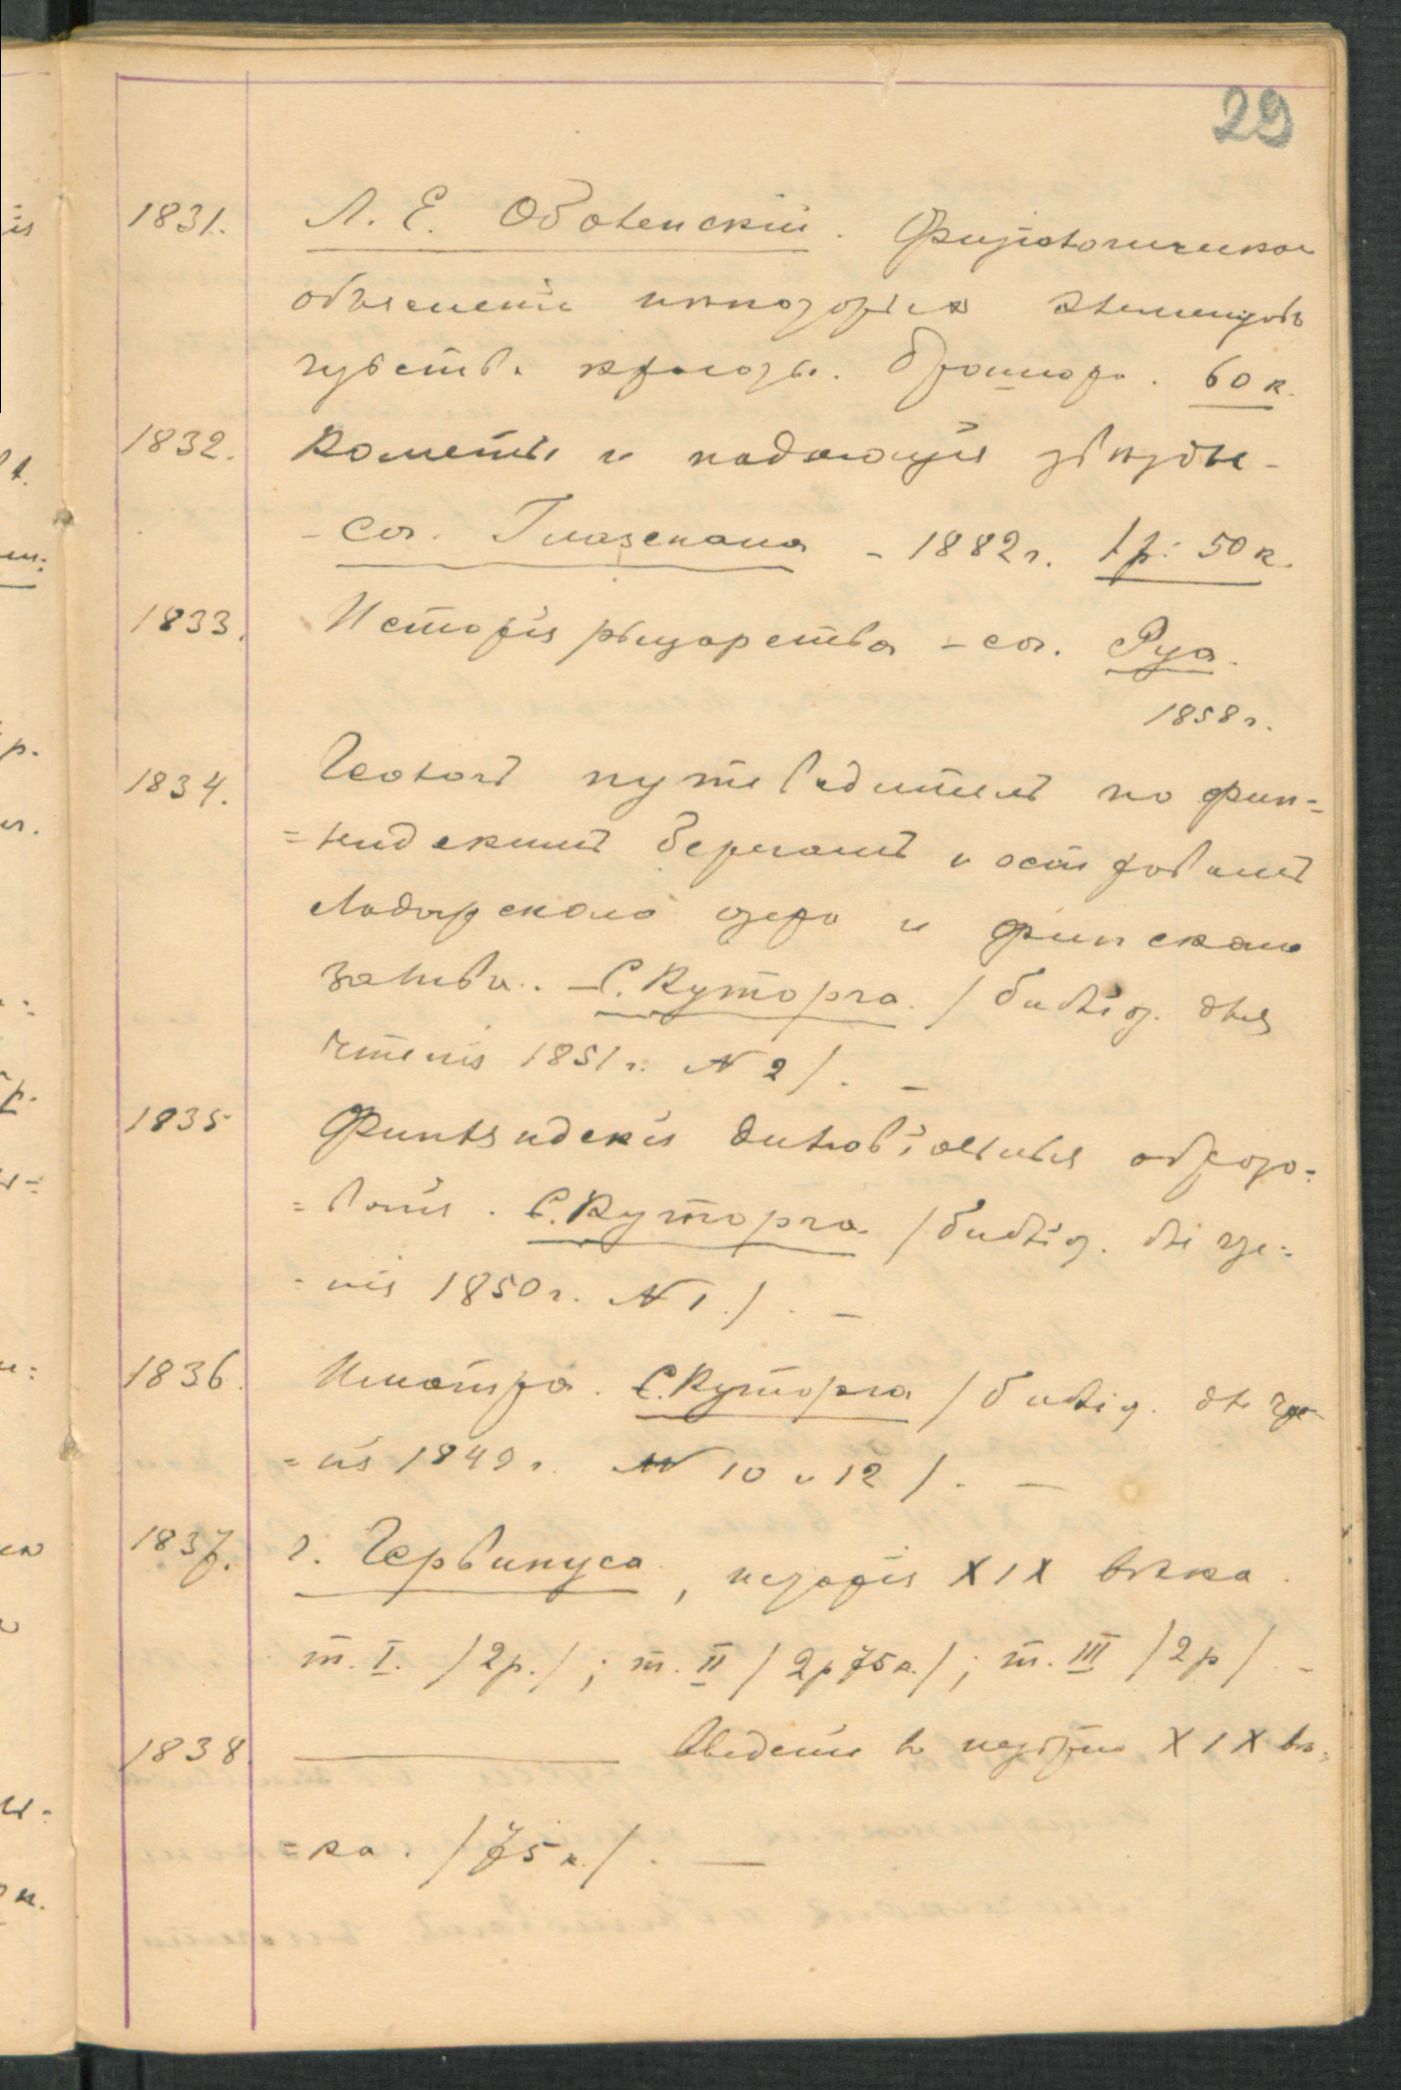 29
1831. Л. Е. Оболенскій. Физіологическое
объясненіе нѣкоторыхъ элементовъ
чувства красоты. Брошюра. 60 к.
1832. Кометы и падающія звѣзды –
– соч. Глазенапа – 1882 г. 1 р. 50 к.
1833. Исторія рыцарства – соч. Руа.
1858 г.
1834. Геологъ путеводитель по фин=
=ляндскимъ берегамъ и островамъ
Ладожскаго озера и финскаго
залива. – С. Куторга. / библіот. для
чтенія 1851 г. № 2 /. –
1835 Финляндскія дилювіальныя образо=
=ванія. С. Куторга / библіот. для чте=
=нія 1850 г. № 1. /. –
1836. Иматра. С. Куторга / библіот. для чте
=нія 1849 г. № 10 и 12 /. –
1837. г. Гервинуса, исторія XIX вѣка.
т. I. / 2 р. /; т. II / 2 р 75 к. /; т. III / 2 р /. –
1838. ——— Введеніе въ исторію XIX вѣ=
=ка. / 75 к. /. –